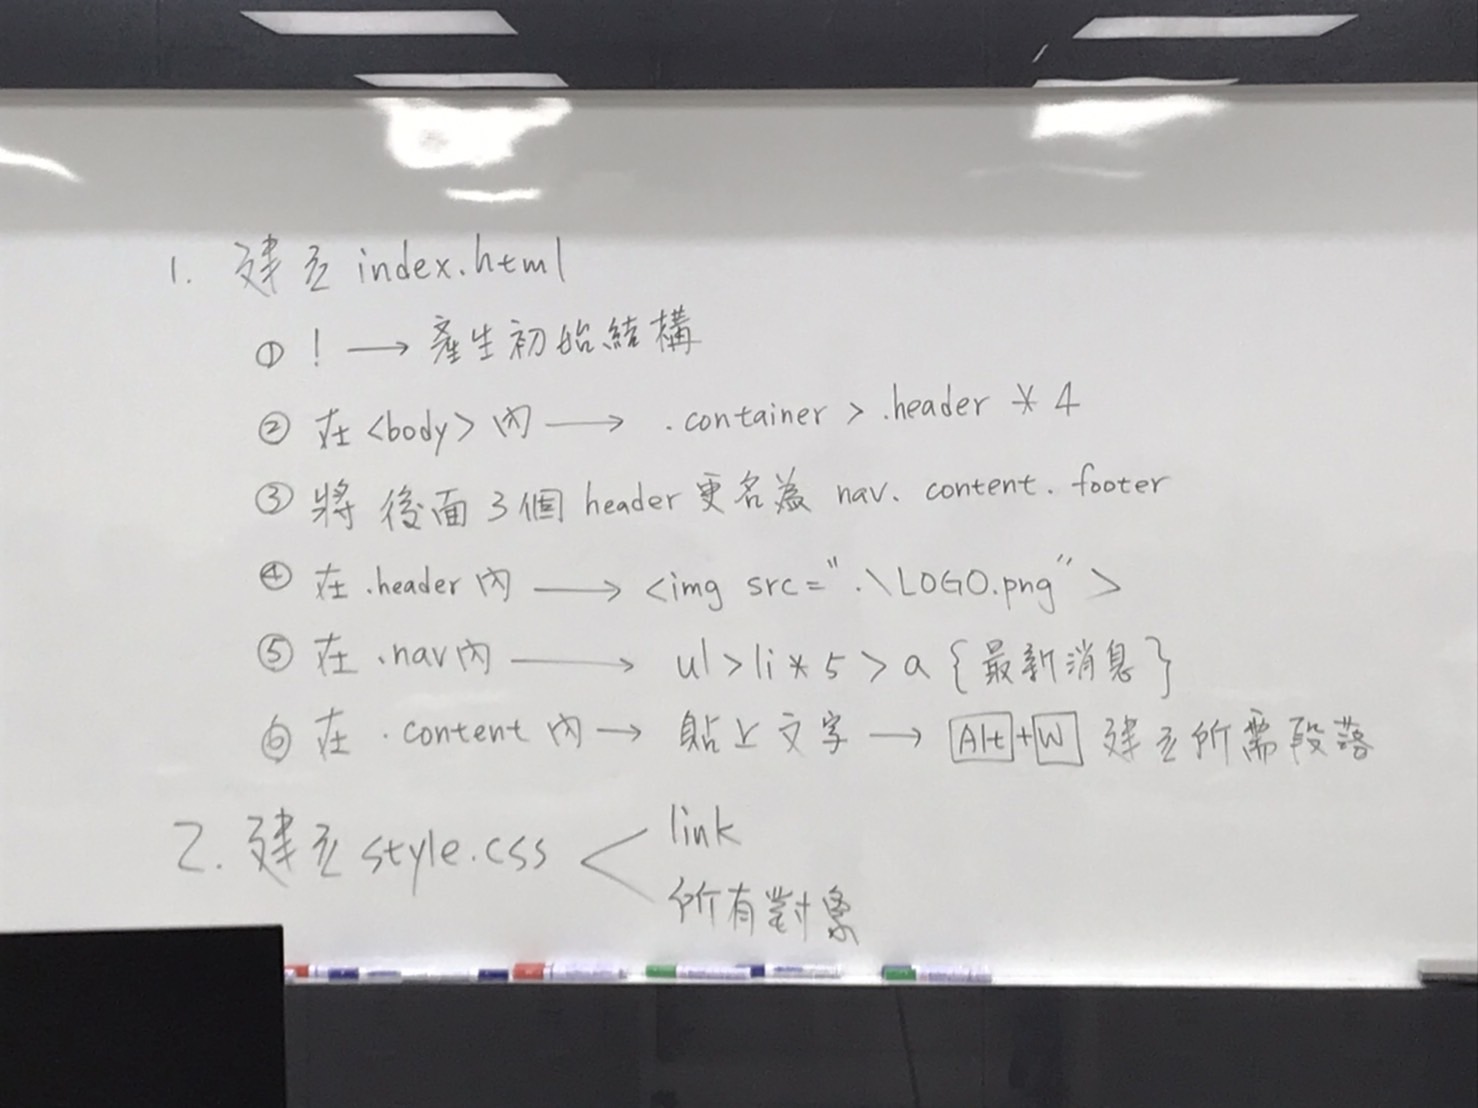 1. 建立 index.html
① ! → 產生初始結構
② 在<body>內 → .container > .header * 4
③ 將後面3個 header 更名為 nav、content、footer
④ 在.header內 → <img src=".\LOGO.png">
⑤ 在.nav內 → ul>li*5>a{最新消息}
⑥ 在.content內 → 貼上文字 → Alt+W 建立所需段落
2. 建立 style.css < link
所有對象